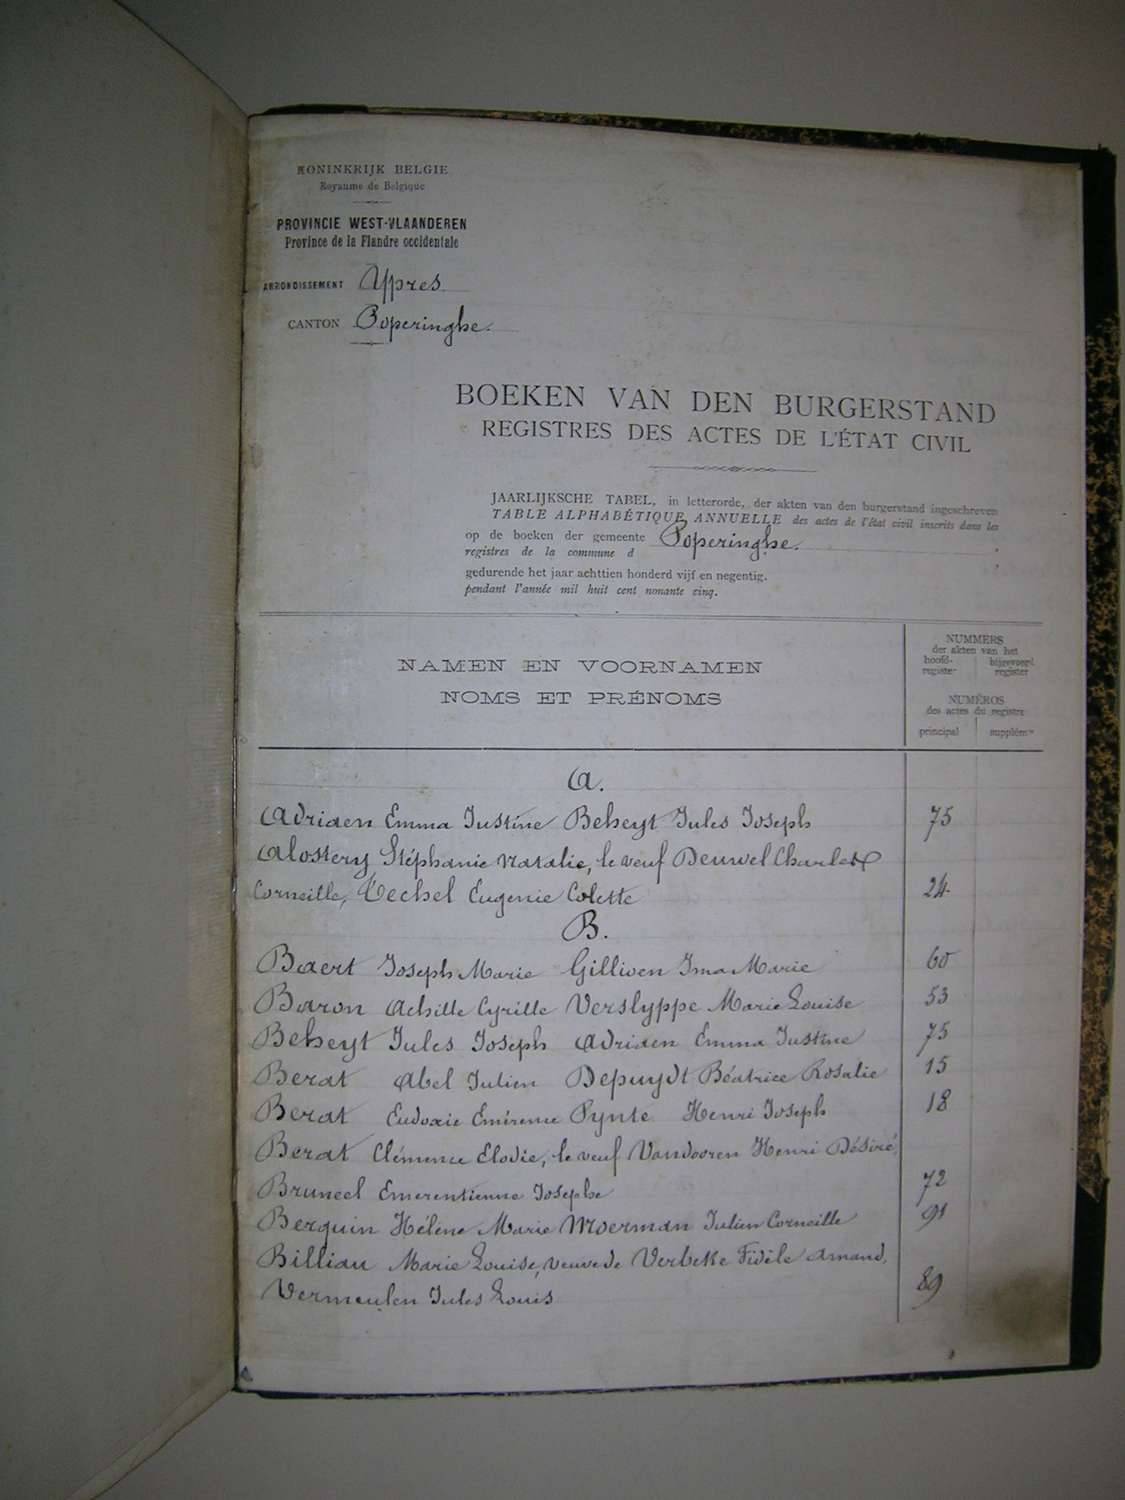 KONINKRIJK BELGIE
Royaume de Belgique
PROVINCIE WEST-VLAANDEREN
Province de la Flandre occidentale
ARRONDISSEMENT Yppres
CANTON Poperinghe.
BOEKEN VAN DEN BURGERSTAND
REGISTRES DES ACTES DE L'ÉTAT CIVIL
JAARLIJKSCHE TABEL, in letterorde, der akten van den burgerstand ingeschreven
TABLE ALPHABÉTIQUE ANNUELLE des actes de l'état civil inscrits dans les
op de boeken der gemeente Poperinghe.
registres de la commune d
gedurende het jaar achttien honderd vijf en negentig.
pendant l'année mil huit cent nonante cinq.
NAMEN EN VOORNAMEN
NOMS ET PRÉNOMS
NUMMERS
der akten van het
hoofd-register
bijgevoegd register
NUMÉROS
des actes du registre
principal suppléme
A.
Adriaen Emma Justine Beheyt Jules Joseph 75
Alostery Stéphanie Natalie, le veuf Deuwel Charles
Corneille, Techel Eugenie Colette 24
B.
Baert Joseph Marie Gillioen Irma Marie 60
Baron Achille Cyrille Verslyppe Marie Louise 53
Beheyt Jules Joseph Adriaen Emma Justine 75
Berat Abel Julien Depuydt Béatrice Rosalie 15
Berat Eudoxie Emérence Pynte Henri Joseph 18
Berat Clémence Elodie, le veuf Vandooren Henri Désiré,
Bruneel Emerentienne Josephe 72
Berquin Hélène Marie Moerman Julien Corneille 91
Billiau Marie Louise, veuve de Verbeke Fidèle Amand,
Vermeulen Jules Louis 89